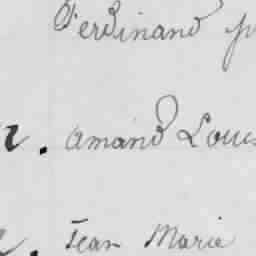 Ferdinand
. Amand Louis
. Jean Marie